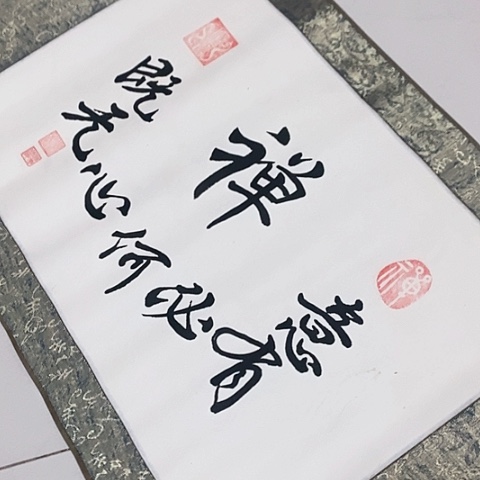 禅意
既无心何必有